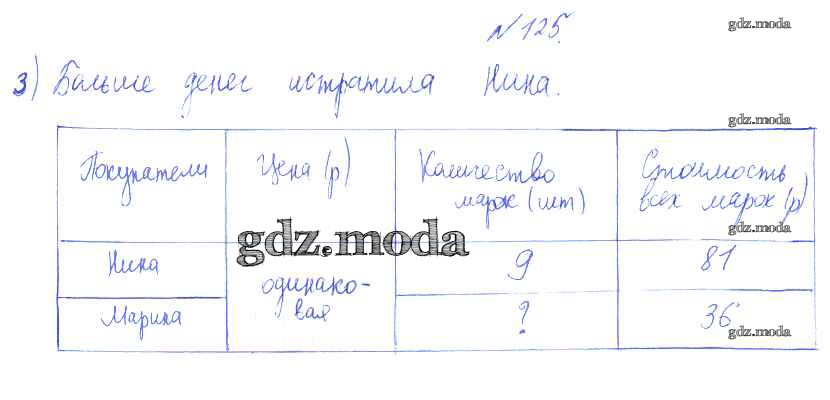 №125.
gdz.moda
3) Больше денег истратила Нина.
gdz.moda
Покупатели Цена (р) Количество марок (шт) Стоимость всех марок (р)
gdz.moda
gdz.moda
Нина одинаковая 9 81
Марина ? 36
gdz.moda